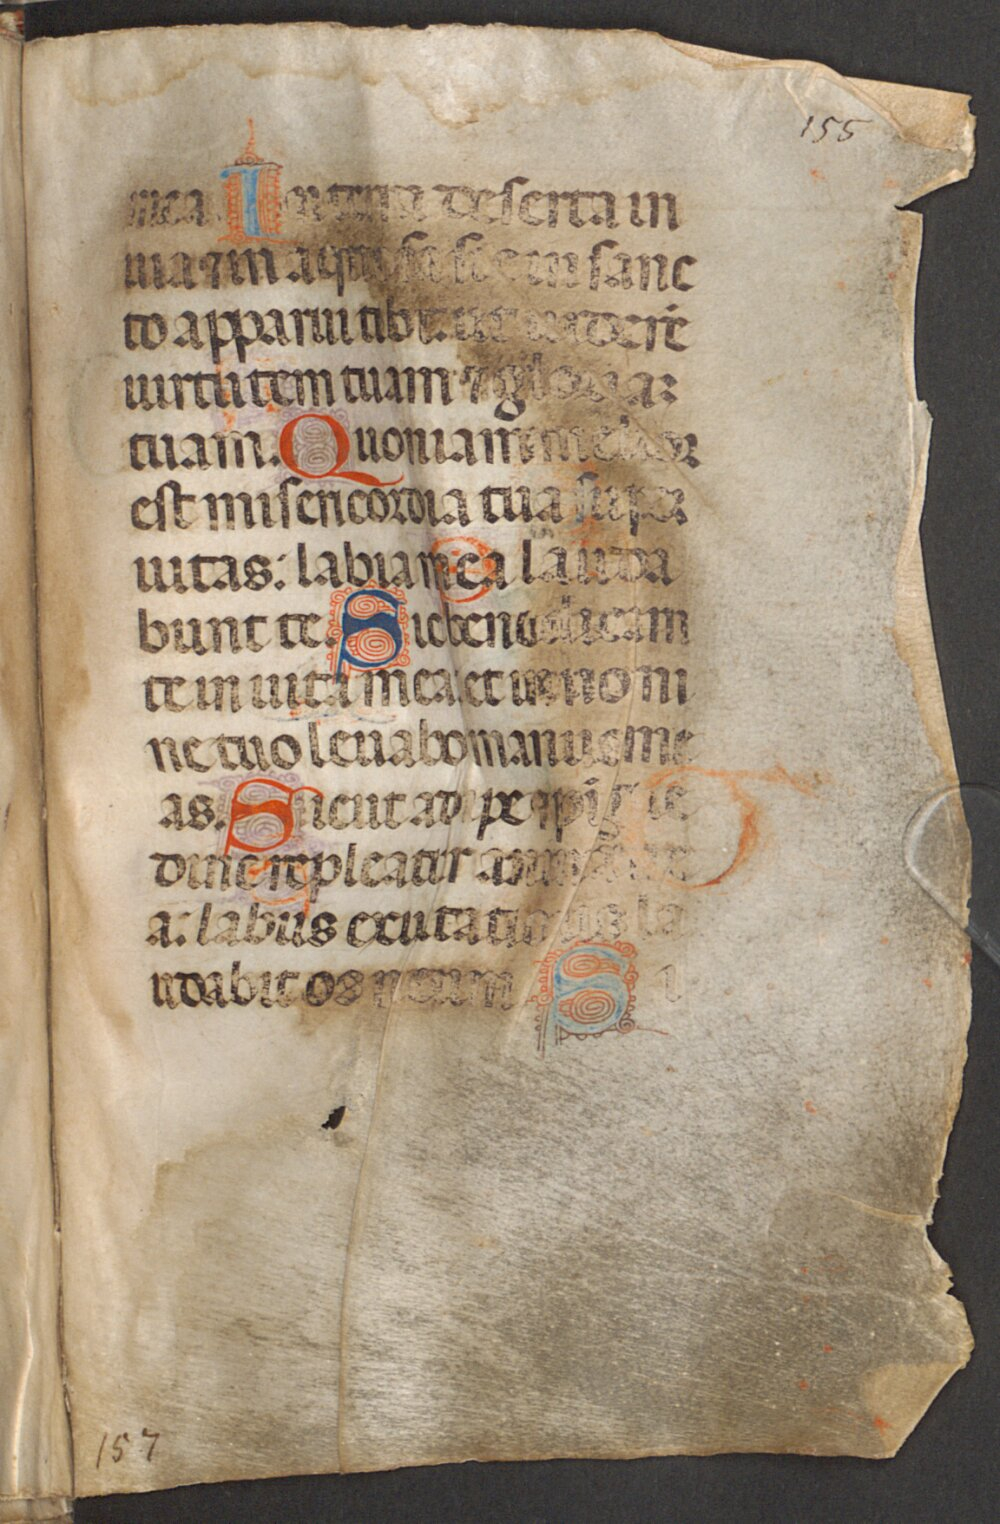 155
mea. In terra deserta in
uia ⁊ in aquosa sic in sanc
to apparui tibi: ut uidere
uirtutem tuam ⁊ gloriaz
tuam. Quoniam melior
est misericordia tua super
uitas: labia mea lauda
bunt te. Sic benedicam
te in uita mea et in nomi
ne tuo leuabo manus me
as. Sicut adipe
repleatur anima
a: labiis exultationis la
udabit os meum Si
157